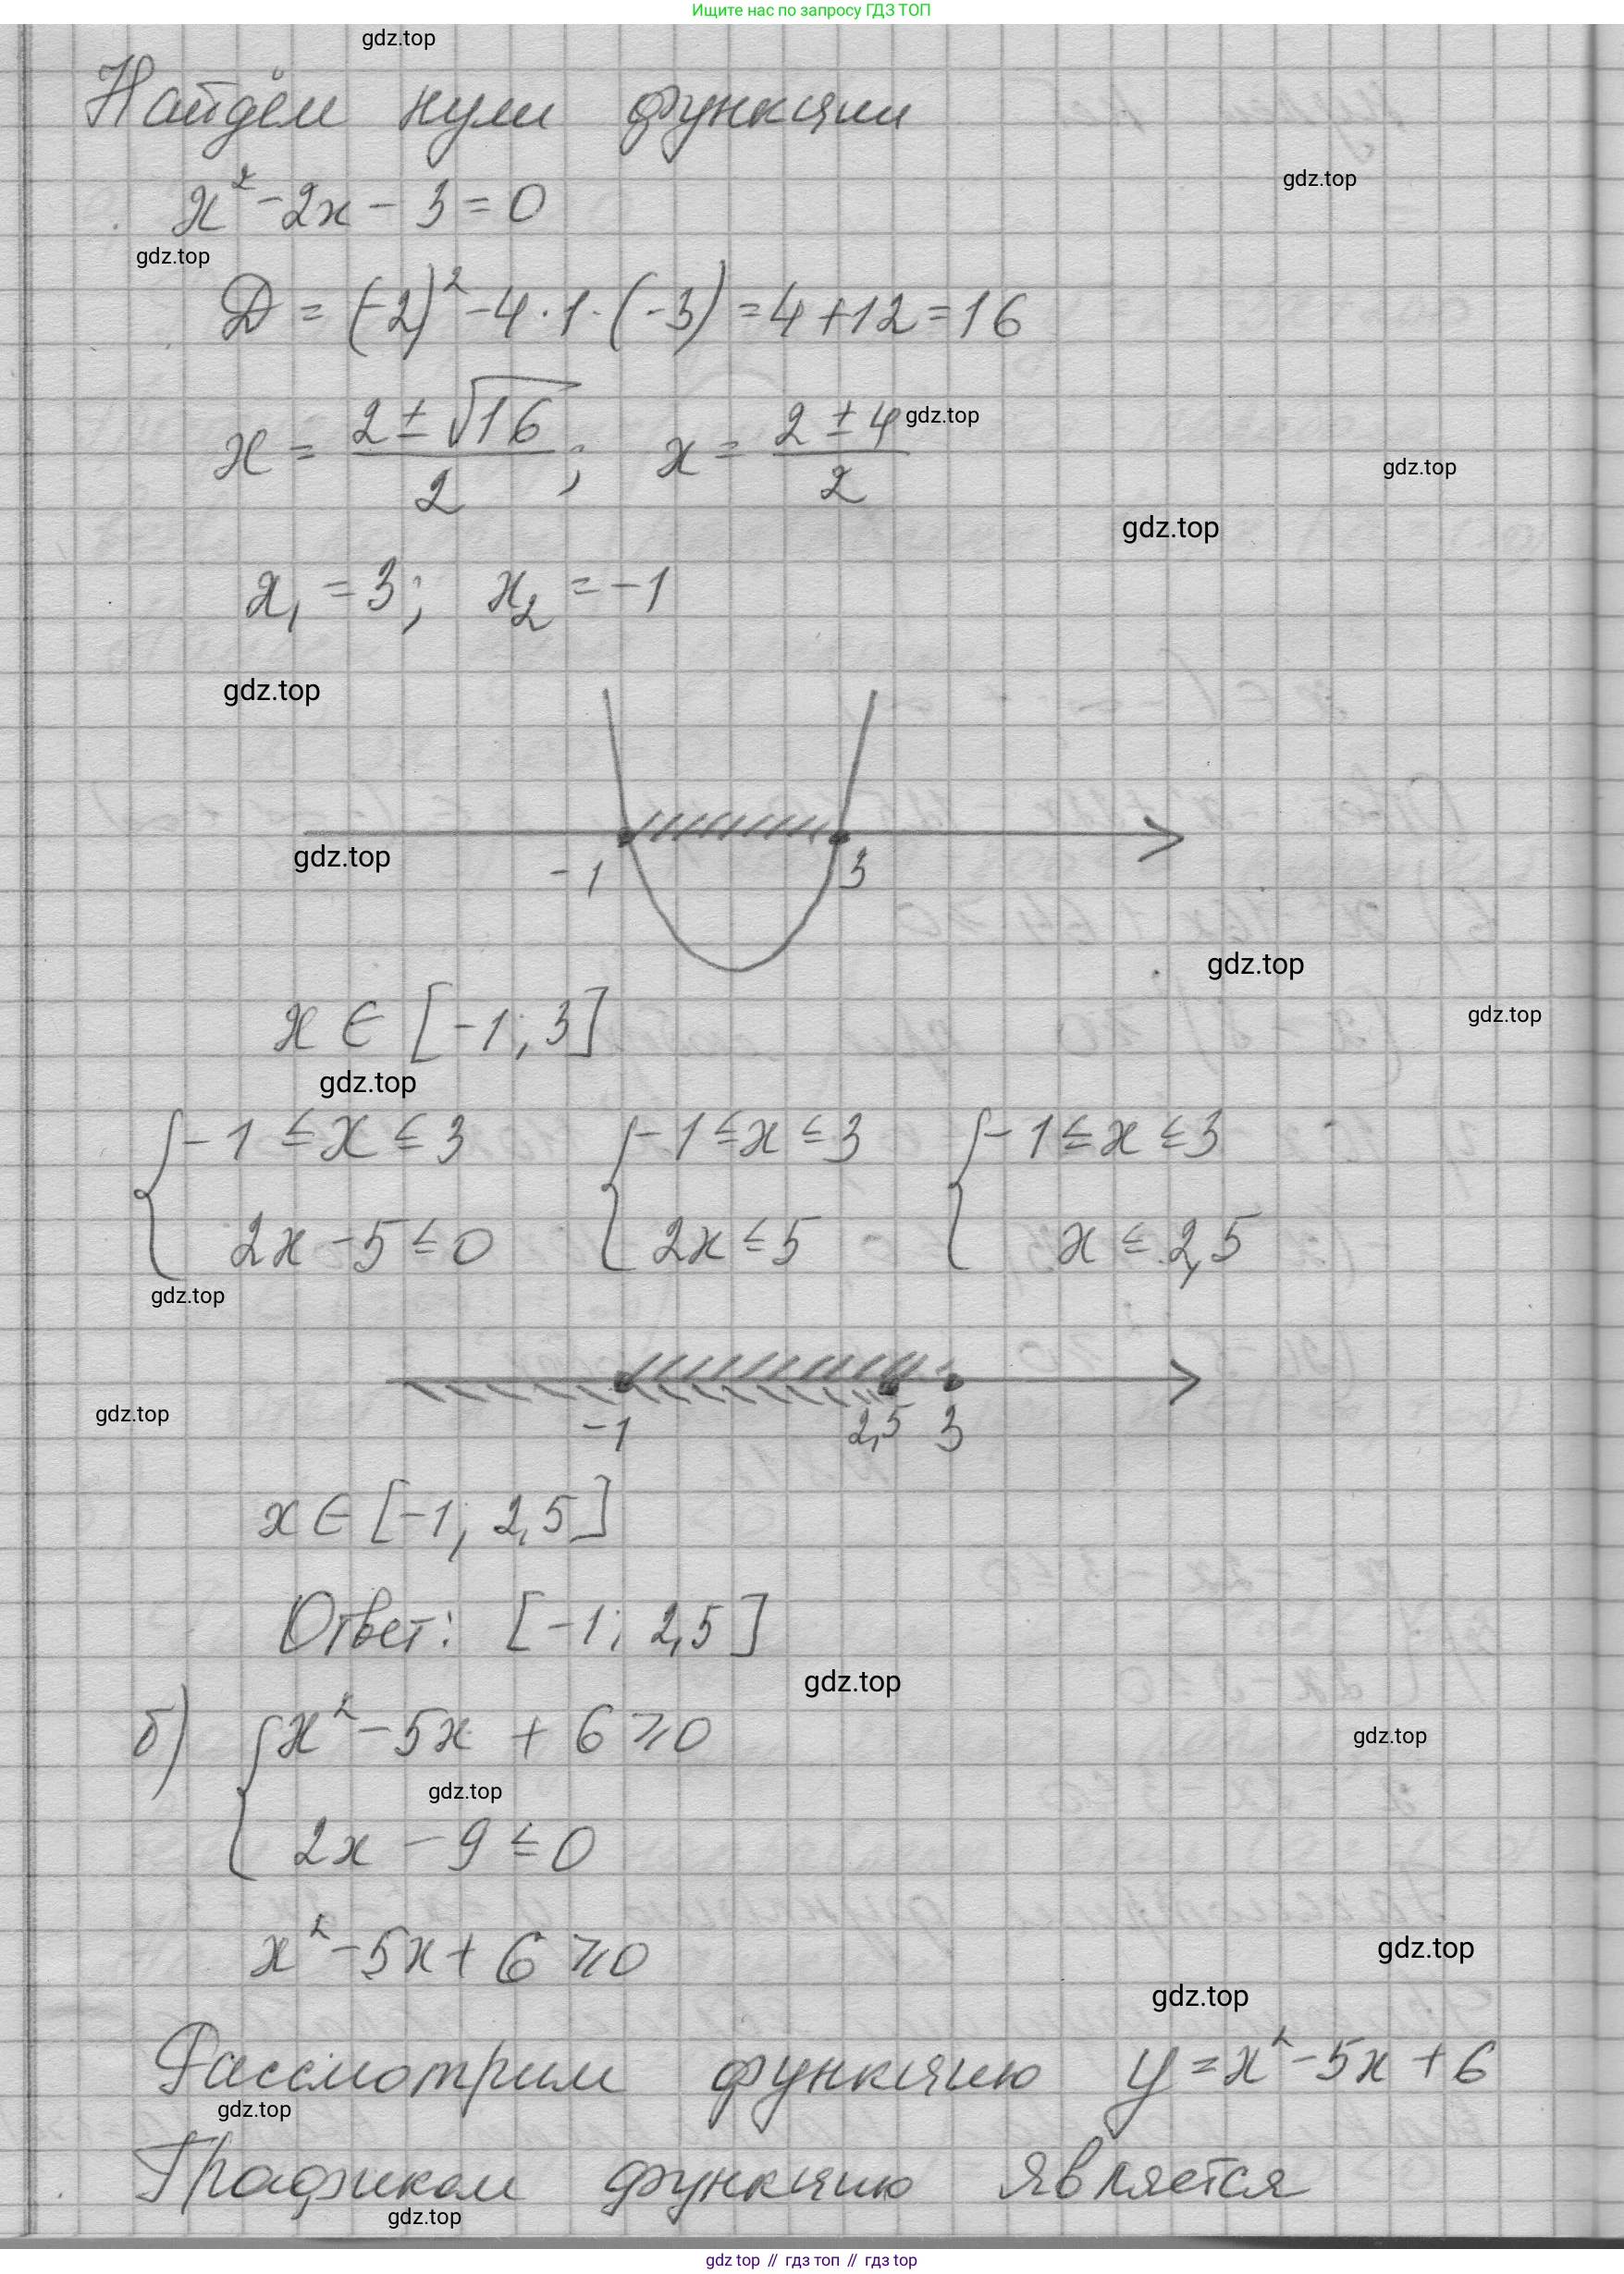 Ищите нас по запросу ГДЗ ТОП
gdz.top
Найдём нули функции
gdz.top
x² - 2x - 3 = 0
gdz.top
D = (-2)² - 4 · 1 · (-3) = 4 + 12 = 16
x = (2 ± √16)/2; x = (2 ± 4)/2
gdz.top
gdz.top
gdz.top
x₁ = 3; x₂ = -1
gdz.top
gdz.top
-1 3
gdz.top
x ∈ [-1; 3]
gdz.top
gdz.top
{ -1 ≤ x ≤ 3 { -1 ≤ x ≤ 3 { -1 ≤ x ≤ 3
2x - 5 ≤ 0 2x ≤ 5 x ≤ 2,5
gdz.top
gdz.top
-1 2,5 3
x ∈ [-1; 2,5]
Ответ: [-1; 2,5]
gdz.top
б) { x² - 5x + 6 ⩾ 0
gdz.top
gdz.top
2x - 9 ≤ 0
x² - 5x + 6 ⩾ 0
gdz.top
gdz.top
Рассмотрим функцию y = x² - 5x + 6
gdz.top
Графиком функцию является
gdz.top
gdz top // гдз топ // гдз top